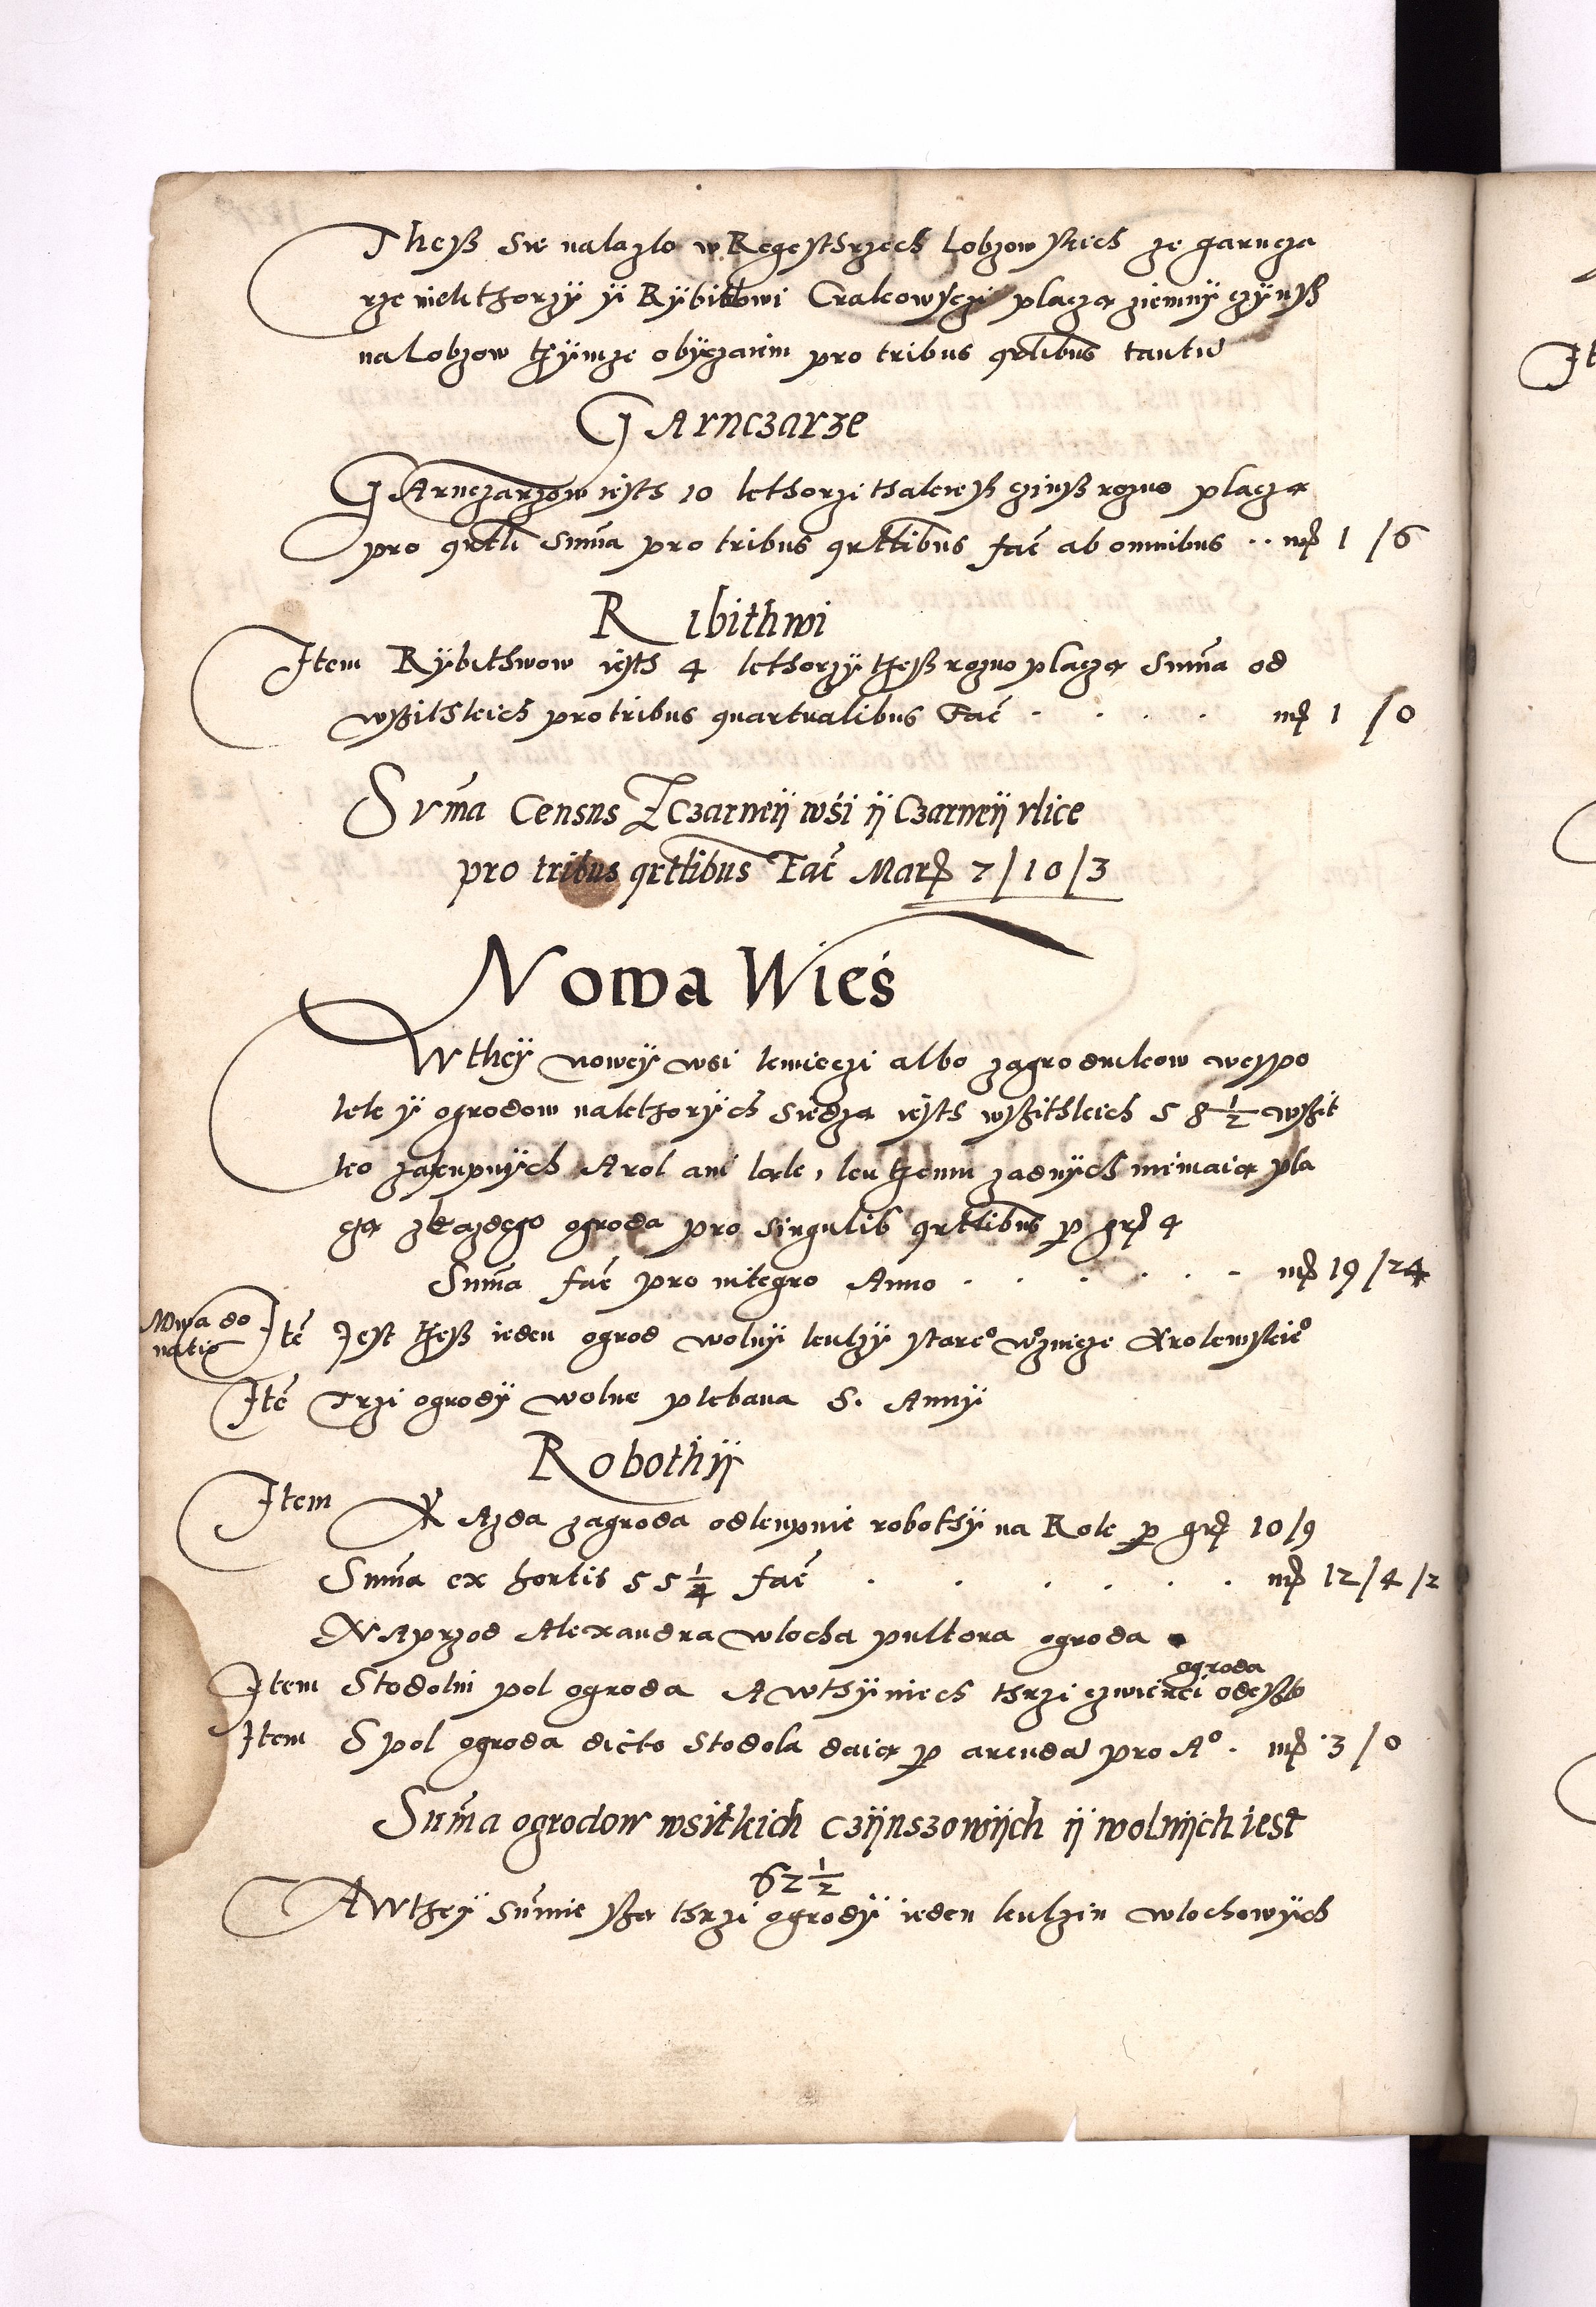 Thesz sie nalazlo w Regestrzech lobzowskich ze garncza
rze niekthorzÿ ÿ Rÿbitwi Cracowsczi placzą ziemnÿ czÿnsz
na Lobzow thÿmze obÿczaiem pro tribus qrtlibus tantū
GArnczarze
GArnczarzow iesth 10 kthorzi thakiesz czinsz rozno placzą
pro qrtli Suma pro tribus qrttibus fac ab omnibus .. mr 1 / 6
Ribithwi
Item Rÿbithwow iesth 4 kthorzÿ thesz rozno placzą Suma od
wszithkich pro tribus quartualibus Fac . . . . mr 1 / 0
Suma Census Z Czarneÿ wśi ÿ Czarneÿ vlice
pro tribus qrttibus Fac Marc 7 / 10 / 3
Nowa Wieś
W theÿ noweÿ wsi kmieczi albo zagrodnikow wespo
lek ÿ ogrodow na kthorÿch siedzą iesth wszithkich 58 1/2 wszit
ko zakupnÿch A rol ani ląk, ku themu zadnÿch nie maią pla
czą z kazdego ogroda pro singulis qrttibus p gr 4
Suma fac pro integro Anno . . . . . . mr 19 / 24
Nowa do
natio
Itē Jest thesz ieden ogrod wolnÿ kuchÿ stare° wÿznicze Krolewskie°
Itē Trzi ogrodÿ wolne plebana S. Annÿ
Robothÿ
Item KAzda zagroda odkupuie robothÿ na Role p gr 10 / 9
Suma ex hortis 55 1/4 fac . . . . . . mr 12 / 4 / 2
NAprzod Alexandra wlocha pultora ogroda
Item Stodolni pol ogroda A w thÿniech thrzi czwierci ogroda odeszło
Item S pol ogroda dicto Stodola daią p arenda pro A° . mr 3 / 0
Suma ogrodow wsitkich czÿnszowÿch ÿ wolnÿch iest
62 1/2
A W theÿ Sumie szą thrzi ogrodÿ ieden kuchin wlochowÿch